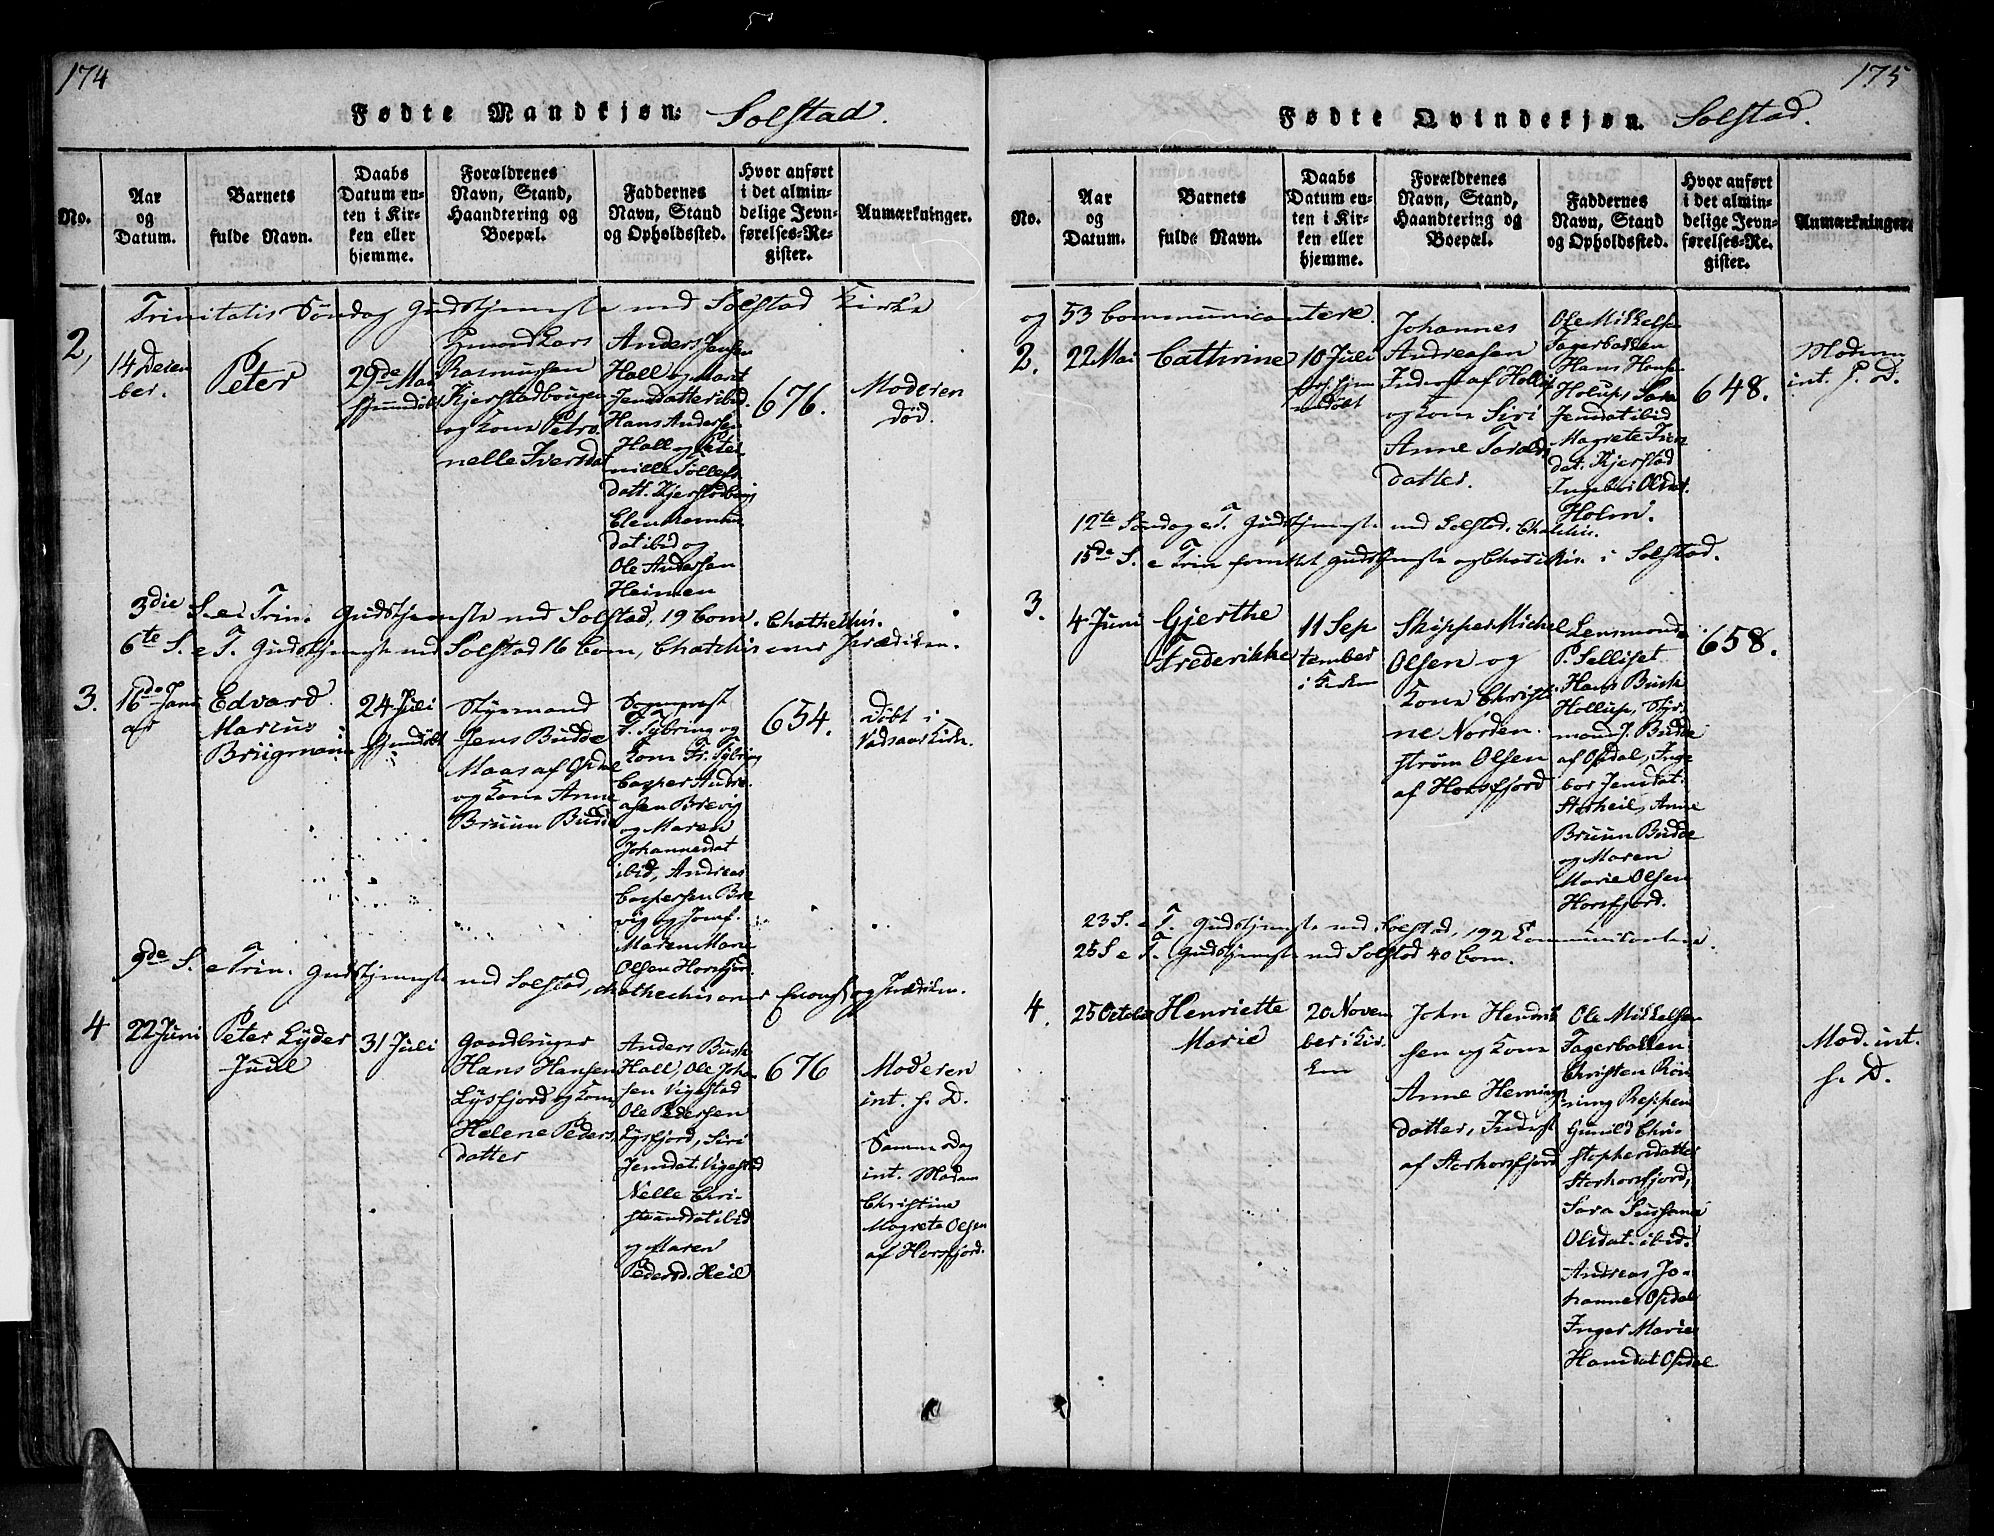 174
Fødte Mandkjøn: Solstad.
No.
Aar
og
Datum.
Barnets
fulde Navn.
Daabs
Datum en-
ten i Kir-
ken eller
hjemme.
Forældrenes
Navn, Stand,
Haandtering og
Boepæl.
Faddernes
Navn, Stand
og Opholdssted.
Hvor anført
i det almin-
delige Jevn-
førelses-Re-
gister.
Anmærkninger.
Trinitatis Söndag Gudstjeneste ved Solstad Kirke
2,
14 Decem
ber.
Peter
29de Mai
hjemdöbt
Rasmussen
og Kone Petro
nelle Iversdat
Anders Jensen
Hall og Marit
Jensdatter ibid.
Hans Andersen
Hall og Peter
nille Tollefs
datt. Kjerstadboug
dat ibid og
Ole Andersen
Heimen
676.
Moderen
död.
3die S. e. Trin. Gudstjeneste ved Solstad, 19 Com. Chathechis.
6te S. e T. Gudstjeneste ved Solstad 16 Com, Chatchis over Prædiken.
3.
16de Janu
ar
Edvard
Marius
Brügmann
24 Juli
hjemdöbt
Styrmand
Jens Budde
Maas af Opdal
og Kone Anne
Bruun Budde
Sogneprest
F. Sybring og
Kone Fr. Sybring
Casper Andre
asen Brevig
og Maren
Johannesdat
ibid, Andreas
Caspersen Bre
vig og Jomf.
Maren Marie
Olsen Horsfjord.
654.
döbt i
Vadsaas Kirke.
9de S. e Trin. Gudstjeneste ved Solstad, chathechis over Evang. og Prædiken.
4
22 Juni
Peter Lyder
Juul
31 Juli
Gaardbruger
Hans Hansen
Lysfjord og Kone
Helene Peders
datter
Anders Busk
Hall, Ole Joha
sen Vigestad
Ole Pedersen
Lysfjord, Siri
Jensdat. Vigestad
Nelle Chri-
stiansdat ibid
og Maren
Pedersd. Heil
676
Moderen
int. s. D.
Samme dag
int. Madam
Christine
Magreta Olsen
af Horsfjord.
175
Fødte Qvindekjøn. Solstad.
No.
Aar
og
Datum.
Barnets
fulde Navn.
Daabs
Datum en-
ten i Kir-
ken eller
hjemme.
Forældrenes
Navn, Stand,
Haandtering og
Boepæl.
Faddernes
Navn, Stand
og Opholdssted.
Hvor anført
i det almin-
delige Jevn-
førelses-Re-
gister.
Anmærkninger.
og 53 Communicantere.
2.
22 Mai
Cathrine
10 Juli
Johannes
Andreasen
Inderst af Hollup
og Kone Siri
Anne Toralds
datter.
Ole Mikkelsen
Fagerbakken
Hans Hansen
Holup, Sara
Jensdat ibid
Magrete Iver
dat. Kjerstad
Ingeber Olsdat.
Holm.
648.
Moderen
int. s. D.
12te Söndag e. T. Gudstjeneste ved Solstad. Chatchis.
15de S. e Trin forrettet Gudstjeneste og Chatchis. i Solstad.
3.
4 Juni
Gjerthe
Frederikke
11 Sep
tember
i Kirken
Skipper Michel
Olsen og
Kone Christi
ne Norden
ström Olsen
af Horsfjord
Lensmand
P. Selliset
Hans Busk
Hollup, Styr
mand J. Budde
af Opdal, Inge
bor Jensdat.
Storheil, Anne
Bruun Budde
og Maren
Marie Olsen
Horsfjord.
658.
23 S. e T. Gudstjeneste ved Solstad, 192 Communicantere.
25 S e T. Gudstjeneste ved Solstad 40 Com.
4.
25 October
Henriette
Marie
20 Novem
ber i Kir
ken
John Hendrik
sen og Kone
Anne Hennings
datter, Inderst
af Storhorsfjord
Ole Mikkelsen
Fagerbakken
Christen Rön
ning Reppen
Gunild Chri-
stophersdatter
Storhorsfjord,
Sara Susanna
Olsdat. ibid.
Andreas Jo-
hannes Opdal
Inger Marie
Hansdat Opdal
Mod. int.
s. D.